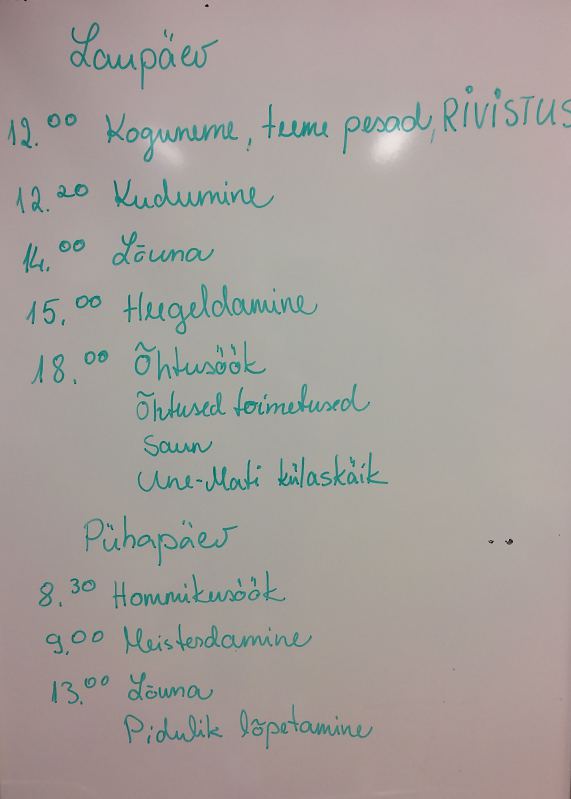 Laupäev
12.00 Koguneme, teeme pesad, RIVISTUS
12.20 Kudumine
14.00 Lõuna
15.00 Heegeldamine
18.00 Õhtusöök
Õhtused toimetused
Saun
Une-Mati külaskäik
Pühapäev
8.30 Hommikusöök
9.00 Meisterdamine
13.00 Lõuna
Pidulik lõpetamine